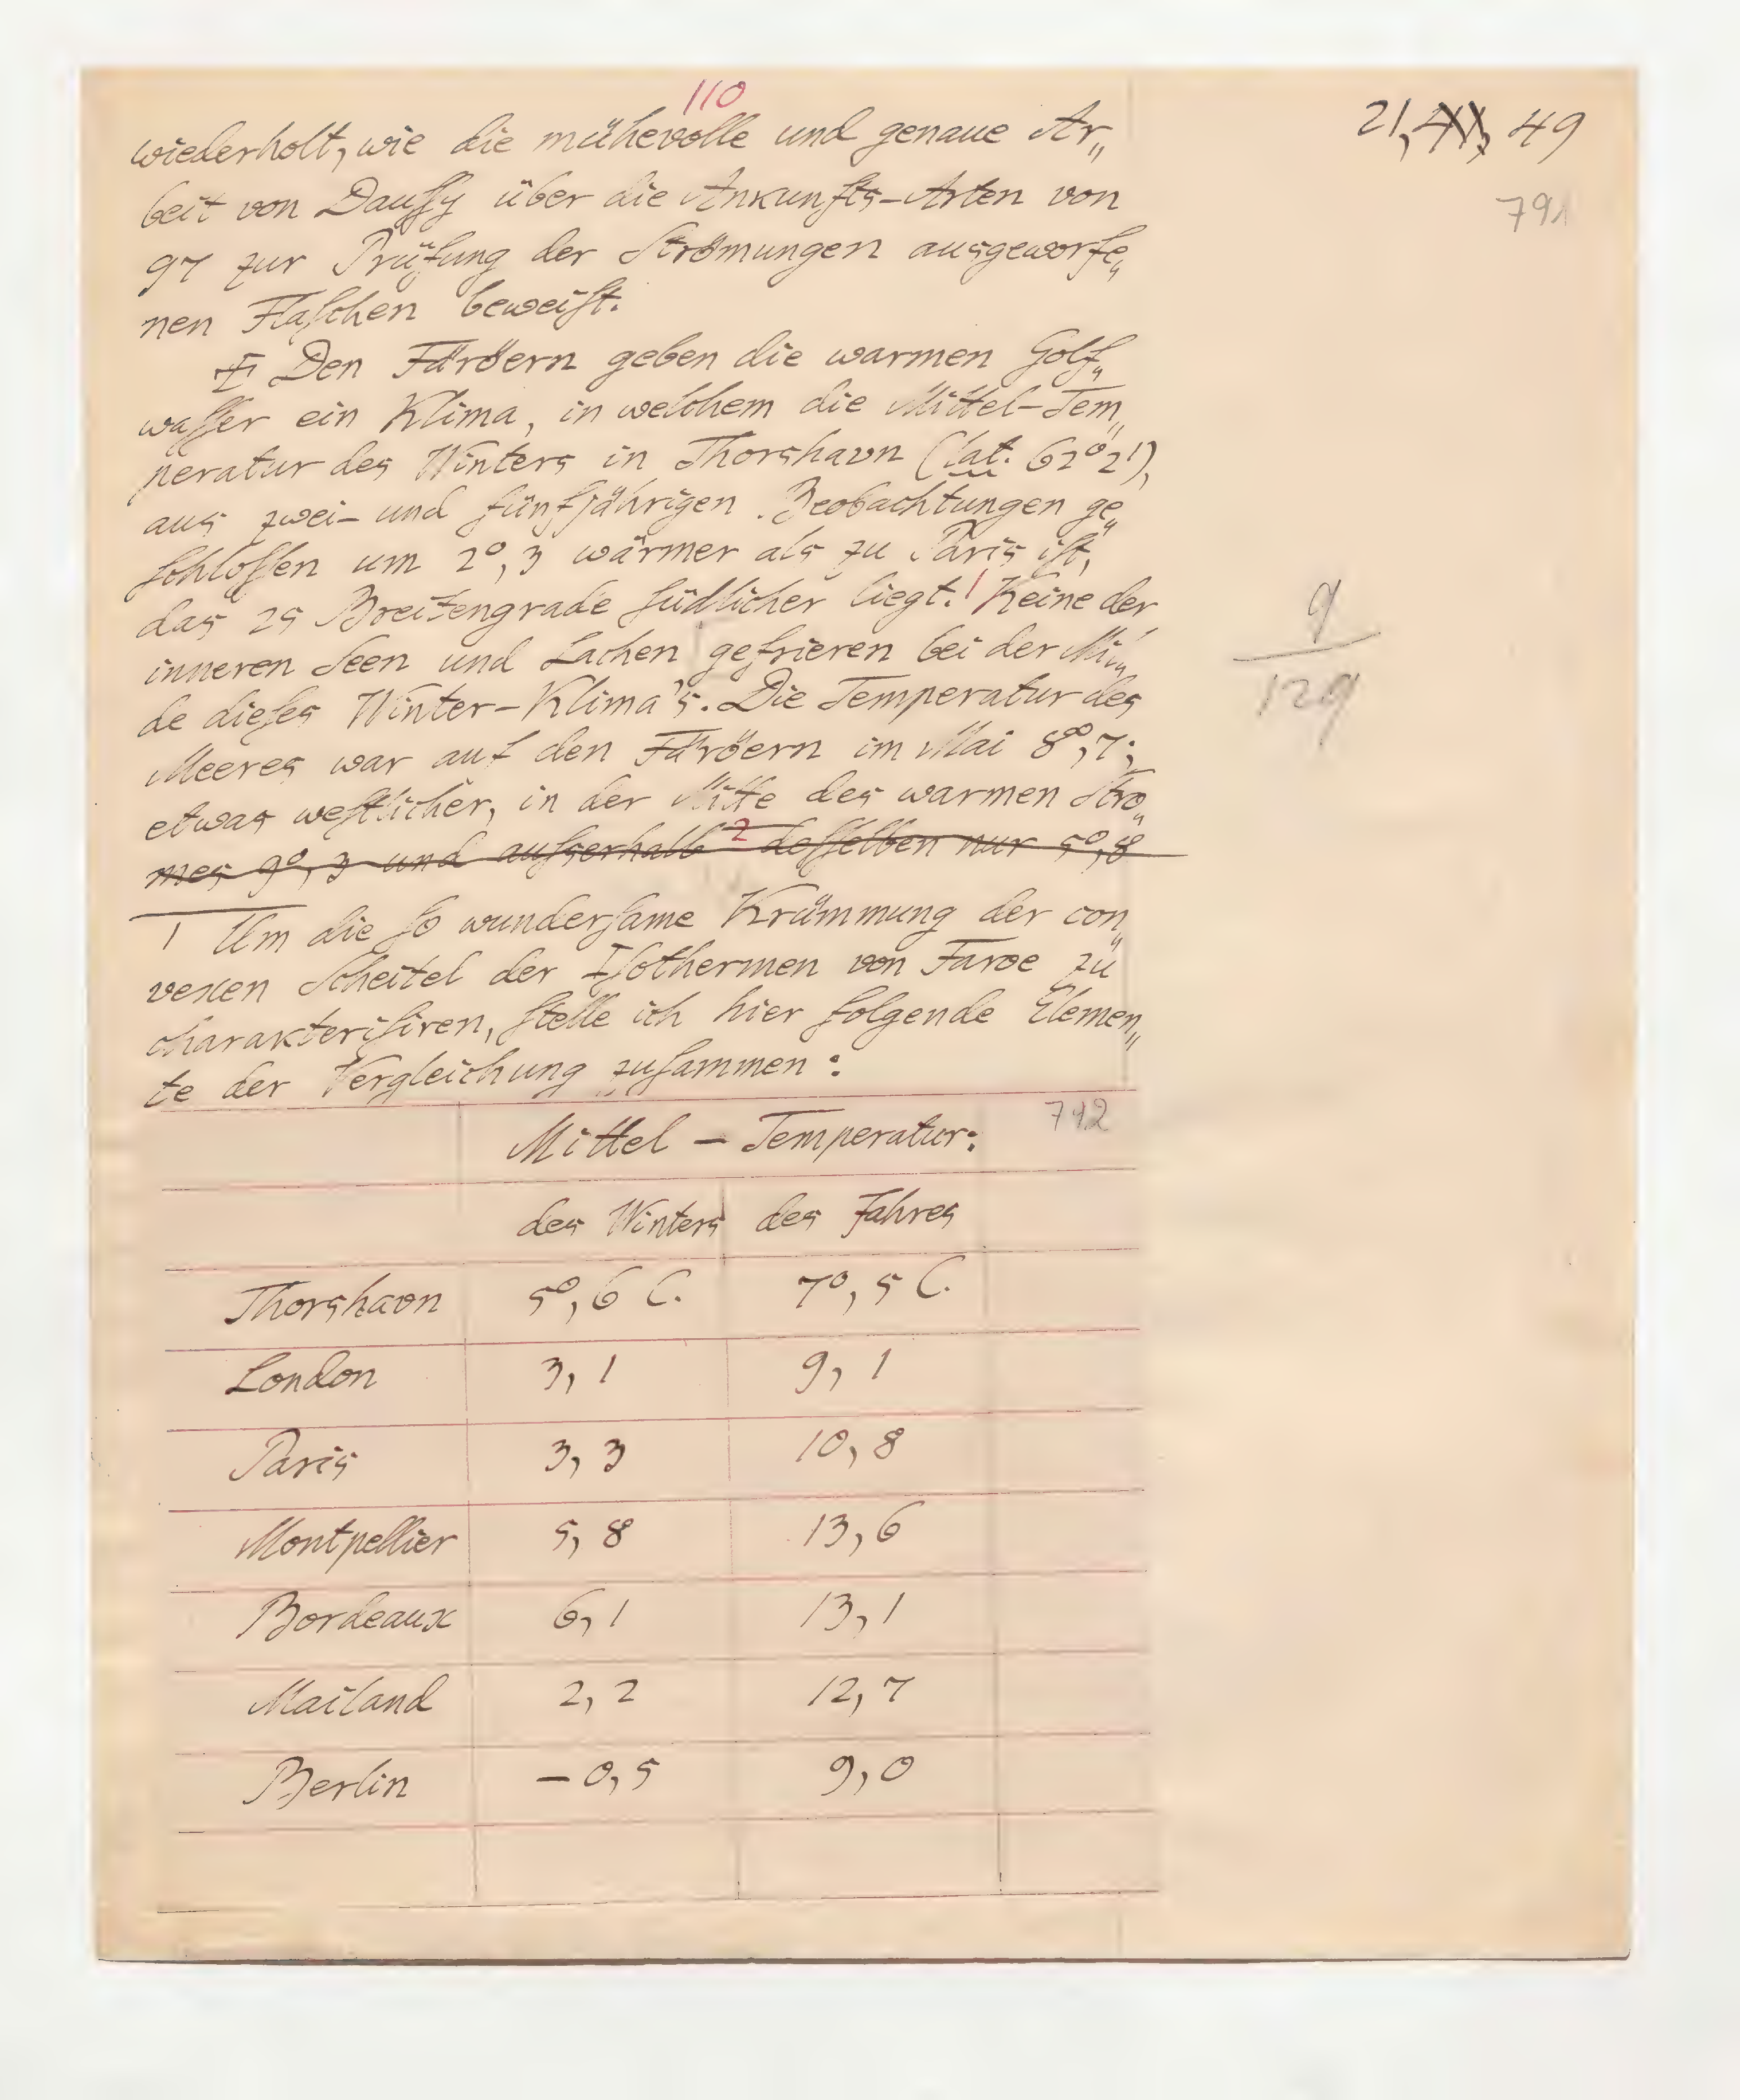 110
21, XX, 49
791
wiederholt, wie die mühevolle und genaue Ar„
beit von Dauſſy über die Ankunfts-Arten von
97 zur Prüfung der Strömungen ausgeworfe„
nen Flaſchen beweiſt.
Den Färöern geben die warmen Golf„
waſſer ein Klima, in welchem die Mittel-Tem„
peratur des Winters in Thorshavn (lat. 62° 2'),
aus zwei- und fünfjährigen Beobachtungen ge„
ſchloſſen um 2°, 3 wärmer als zu Paris iſt,
das 25 Breitengrade ſüdlicher liegt.! Keine der
inneren Seen und Lachen gefrieren bei der Mil„
de dieſes Winter-Klima's. Die Temperatur des
Meeres war auf den Färöern im Mai 8°, 7;
etwas weſtlicher, in der Mitte des warmen Stro„
mes 9°, 3 und auſserhalb 2 deſſelben nur 5°, 8
9
129
1 Um die ſo wunderſame Krümmung der con„
vexen Scheitel der Iſothermen von Faroe zu
charakteriſiren, ſtelle ich hier folgende Elemen„
te der Vergleichung zuſammen:
Mittel - Temperatur: 792
des Winters des Jahres
Thorshavn 5°, 6 C. 7°, 5 C.
London 3, 1 9, 1
Paris 3, 3 10, 8
Montpellier 5, 8 13, 6
Bordeaux 6, 1 13, 1
Mailand 2, 2 12, 7
Berlin - 0, 5 9, 0